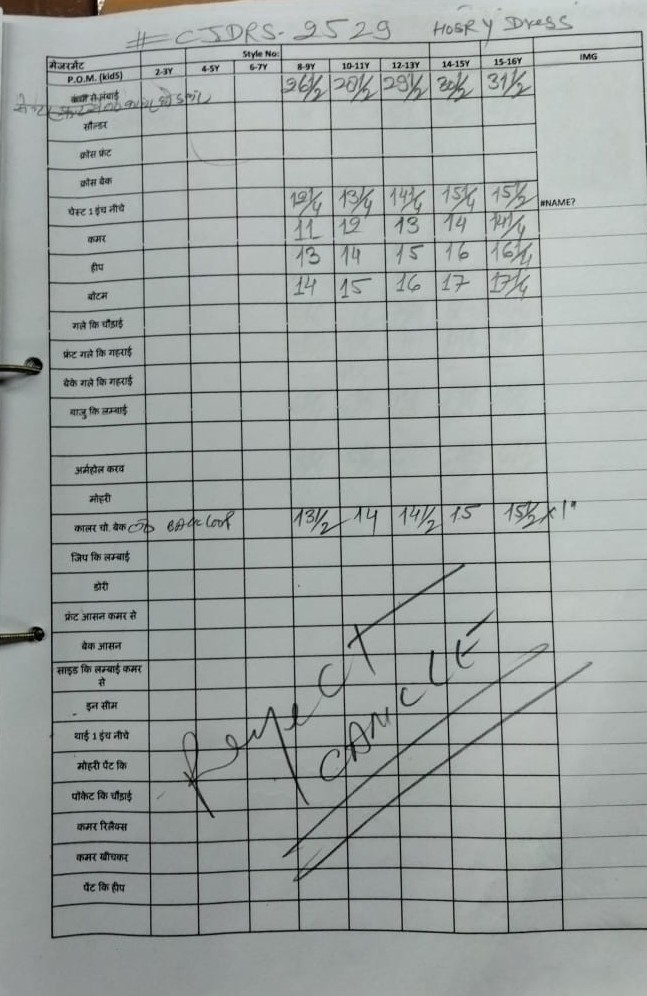 # CJDRS-2529 HOSRY DRESS
मेजरमेंट Style No:
P.O.M. (kidS) 2-3Y 4-5Y 6-7Y 8-9Y 10-11Y 12-13Y 14-15Y 15-16Y IMG
से लंबाई 26½ 28½ 29½ 30½ 31½
सौल्डर
क्रोस फ्रंट
क्रोस बेक
चेस्ट 1 इंच नीचे 12¼ 13¼ 14¼ 15¼ 15½ #NAME?
कमर 11 12 13 14 14¼
हीप 13 14 15 16 16¼
बोटम 14 15 16 17 17¼
गले कि चौड़ाई
फ्रंट गले कि गहराई
बेके गले कि गहराई
बाजु कि लम्बाई
अर्महोल करव
मोहरी
कालर चो. बेक BACK LOOP 13½ 14 14½ 15 15½ x 1"
जिप कि लम्बाई
डोरी
फ्रंट आसन कमर से
बेक आसन
साइड कि लम्बाई कमर
से
इन सीम
थाई 1 इंच नीचे
मोहरी पेंट कि
पॉकेट कि चौड़ाई
कमर रिलैक्स
कमर खीचकर
पेंट कि हीप
Reject
CANCLE